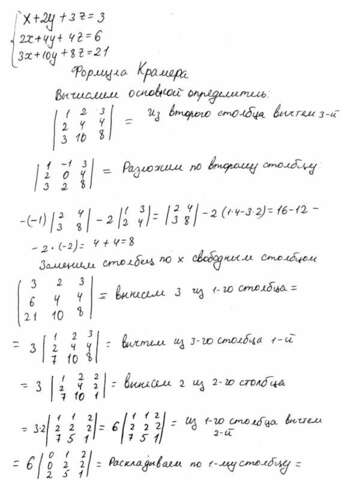 x+2y+3z=3
2x+4y+4z=6
3x+10y+8z=21
Формула Крамера
Вычислим основной определитель:
|1 2 3; 2 4 4; 3 10 8| = Из второго столбца вычтем 3-й
|1 -1 3; 2 0 4; 3 2 8| = Разложим по второму столбцу:
-(-1)|2 4; 3 8| -2|1 3; 2 4| = |2 4; 3 8| -2(1·4-3·2)=16-12-
-2·(-2)= 4+4=8
Заменим столбец по x свободным столбцом
|3 2 3; 6 4 4; 21 10 8| = вынесем 3 из 1-го столбца =
= 3|1 2 3; 2 4 4; 7 10 8| = вычтем из 3-го столбца 1-й
= 3|1 2 2; 2 4 2; 7 10 1| = вынесем 2 из 2-го столбца
= 3·2|1 1 2; 2 2 2; 7 5 1| = 6|1 1 2; 2 2 2; 7 5 1| = из 1-го столбца вычтем 2-й
= 6|0 1 2; 0 2 2; 2 5 1| = Раскладываем по 1-му столбцу =